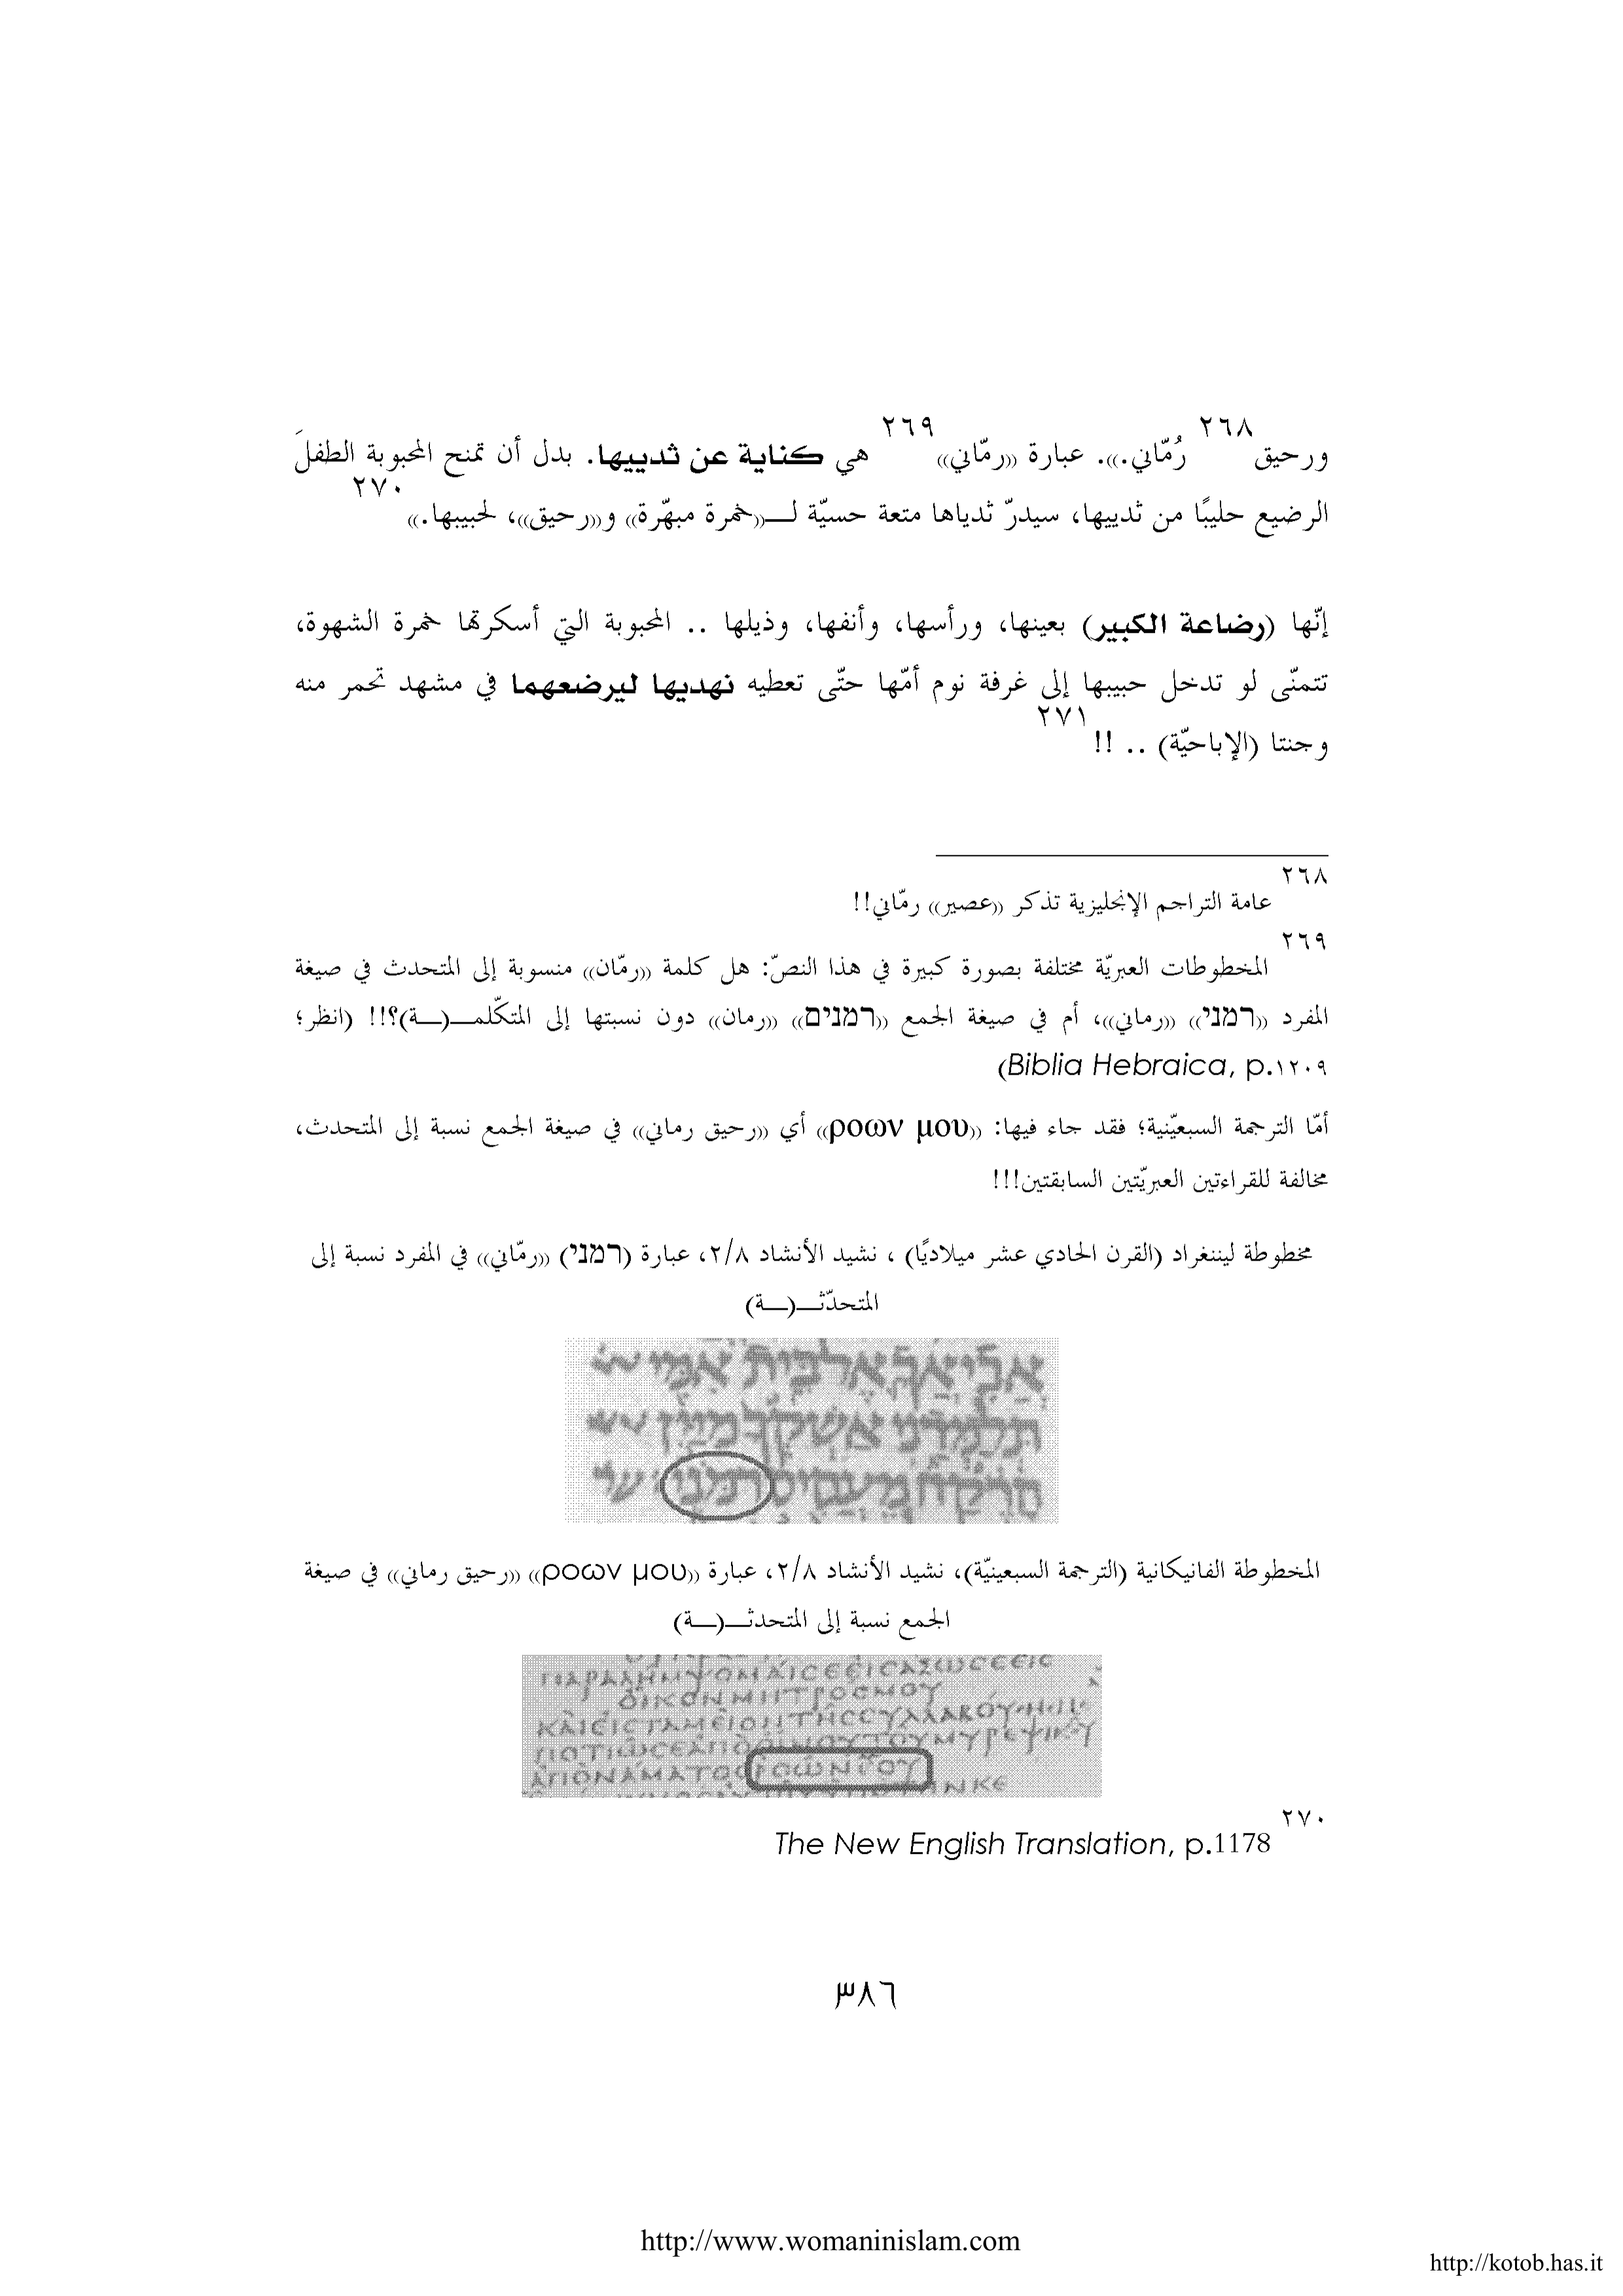 ورحيق٢٦٨ رُمّاني.)). عبارة ((رمّاني))٢٦٩ هي كناية عن ثدييها. بدل أن تمنح المحبوبة الطفلَ
الرضيع حليبًا من ثدييها، سيدرّ ثدياها متعة حسيّة لـــ((خمرة مبهّرة)) و((رحيق))، لحبيبها.))٢٧٠
إنّها (رضاعة الكبير) بعينها، ورأسها، وأنفها، وذيلها .. المحبوبة التي أسكرتها خمرة الشهوة،
تتمنّى لو تدخل حبيبها إلى غرفة نوم أمّها حتّى تعطيه نهديها ليرضعهما في مشهد تحمر منه
وجنتا (الإباحيّة) .. !!٢٧١
٢٦٨ عامة التراجم الإنجليزية تذكر ((عصير)) رمّاني!!
٢٦٩ المخطوطات العبريّة مختلفة بصورة كبيرة في هذا النصّ: هل كلمة ((رمّان)) منسوبة إلى المتحدث في صيغة
المفرد ((רמני)) ((رماني))، أم في صيغة الجمع ((רמנים)) ((رمان)) دون نسبتها إلى المتكّلمــ(ــة)؟!! (انظر؛
Biblia Hebraica, p.١٢٠٩)
أمّا الترجمة السبعيّنية؛ فقد جاء فيها: ((ροων μου)) أي ((رحيق رماني)) في صيغة الجمع نسبة إلى المتحدث،
مخالفة للقراءتين العبريّتين السابقتين!!!
مخطوطة ليننغراد (القرن الحادي عشر ميلاديًا) ، نشيد الأنشاد ٢/٨، عبارة (רמני) ((رمّاني)) في المفرد نسبة إلى
المتحدّثــ(ــة)
المخطوطة الفاتيكانية (الترجمة السبعينيّة)، نشيد الأنشاد ٢/٨، عبارة ((ροων μου)) ((رحيق رماني)) في صيغة
الجمع نسبة إلى المتحدثــ(ــة)
٢٧٠ The New English Translation, p.1178
٣٨٦
http://www.womaninislam.com
http://kotob.has.it